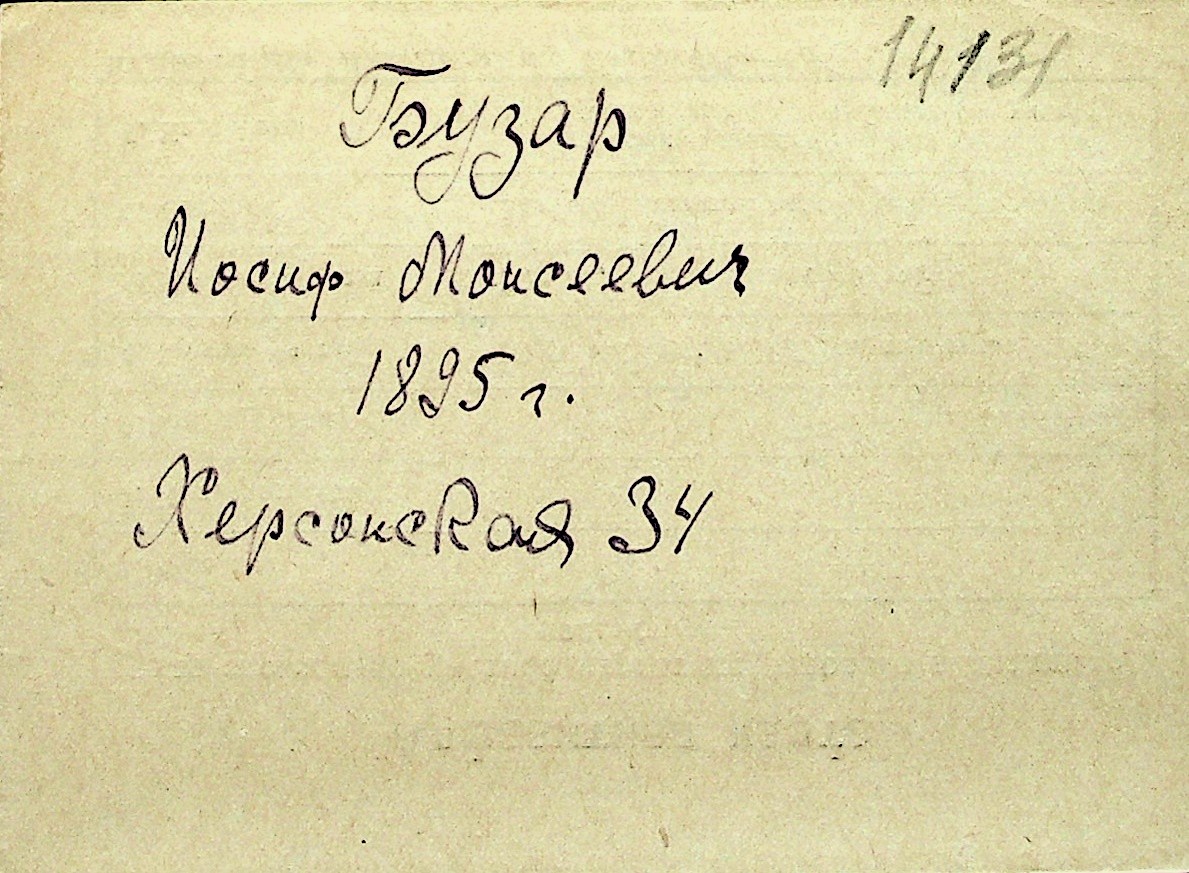 14131
Бузар
Иосиф Моисеевич
1895 г.
Херсонская 34